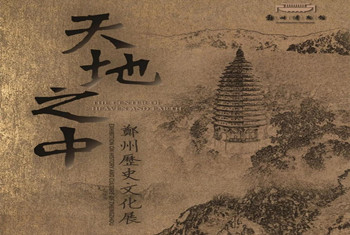 天地之中
THE CENTER OF
HEAVEN AND EARTH
鄭州歷史文化展
鄭州博物館